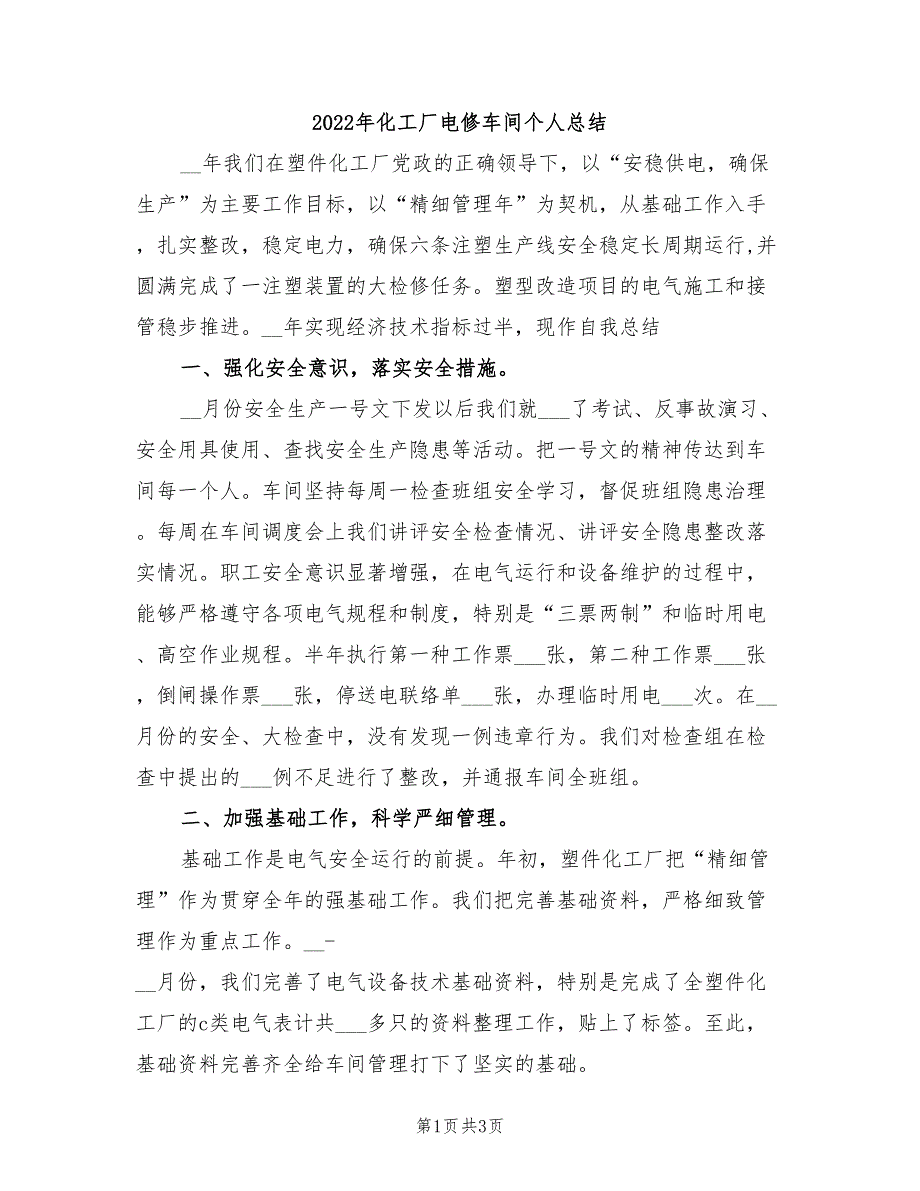 2022年化工厂电修车间个人总结
__年我们在塑件化工厂党政的正确领导下，以“安稳供电，确保
生产”为主要工作目标，以“精细管理年”为契机，从基础工作入手
，扎实整改，稳定电力，确保六条注塑生产线安全稳定长周期运行,并
圆满完成了一注塑装置的大检修任务。塑型改造项目的电气施工和接
管稳步推进。__年实现经济技术指标过半，现作自我总结
一、强化安全意识，落实安全措施。
__月份安全生产一号文下发以后我们就___了考试、反事故演习、
安全用具使用、查找安全生产隐患等活动。把一号文的精神传达到车
间每一个人。车间坚持每周一检查班组安全学习，督促班组隐患治理
。每周在车间调度会上我们讲评安全检查情况、讲评安全隐患整改落
实情况。职工安全意识显著增强，在电气运行和设备维护的过程中，
能够严格遵守各项电气规程和制度，特别是“三票两制”和临时用电
、高空作业规程。半年执行第一种工作票___张，第二种工作票___张
，倒闸操作票___张，停送电联络单___张，办理临时用电___次。在__
月份的安全、大检查中，没有发现一例违章行为。我们对检查组在检
查中提出的___例不足进行了整改，并通报车间全班组。
二、加强基础工作，科学严细管理。
基础工作是电气安全运行的前提。年初，塑件化工厂把“精细管
理”作为贯穿全年的强基础工作。我们把完善基础资料，严格细致管
理作为重点工作。__-
__月份，我们完善了电气设备技术基础资料，特别是完成了全塑件化
工厂的c类电气表计共___多只的资料整理工作，贴上了标签。至此，
基础资料完善齐全给车间管理打下了坚实的基础。
第1页共3页